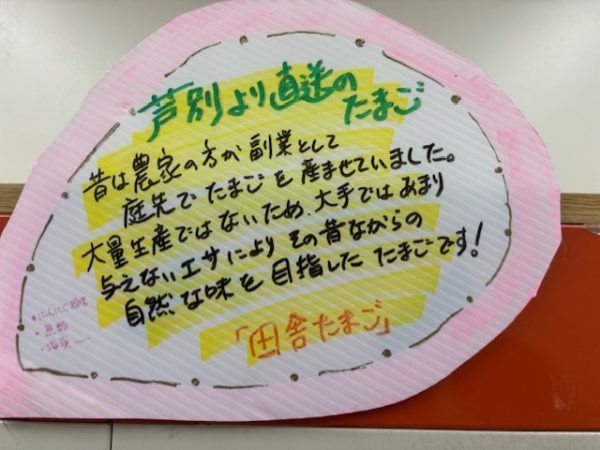 芦別より直送の
たまご
昔は農家の方が副業として
庭先でたまごを産ませていました。
大量生産ではないため、大手ではあまり
与えないエサによりその昔ながらの
自然な味を目指したたまごです!
「田舎たまご」
・にんにく
・魚粉
・海藻